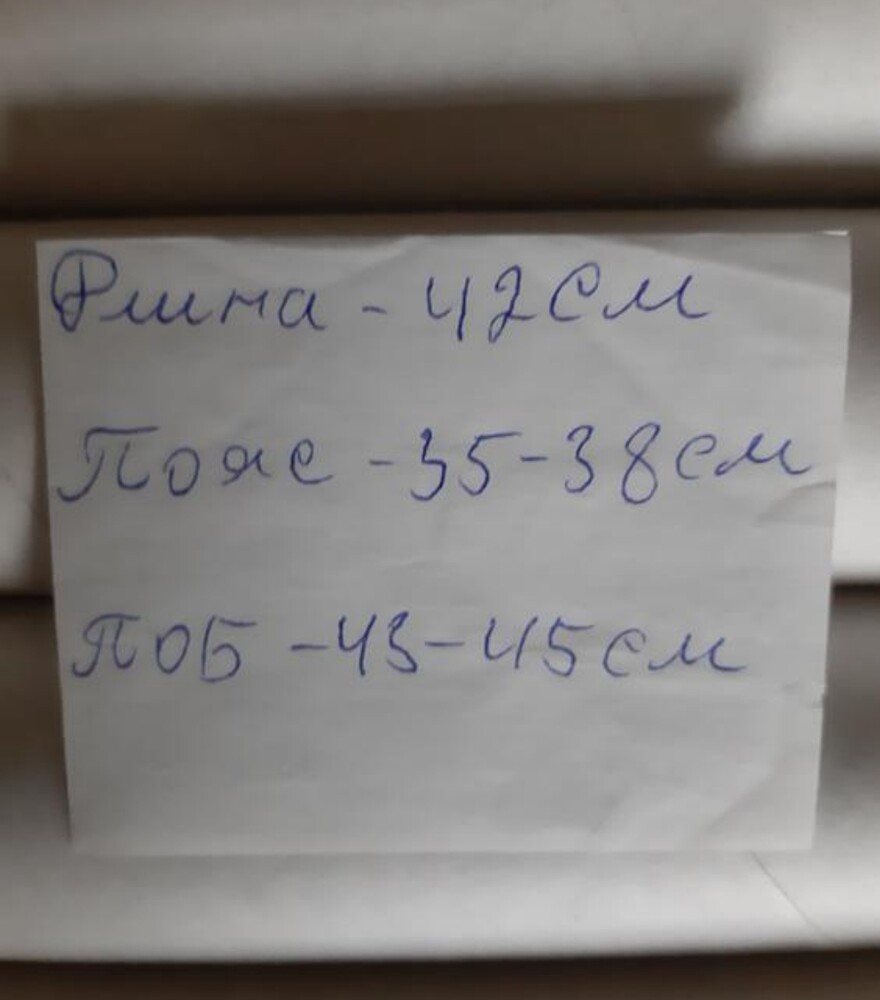 Длина - 42см
Пояс - 35-38см
ПОБ - 43-45см